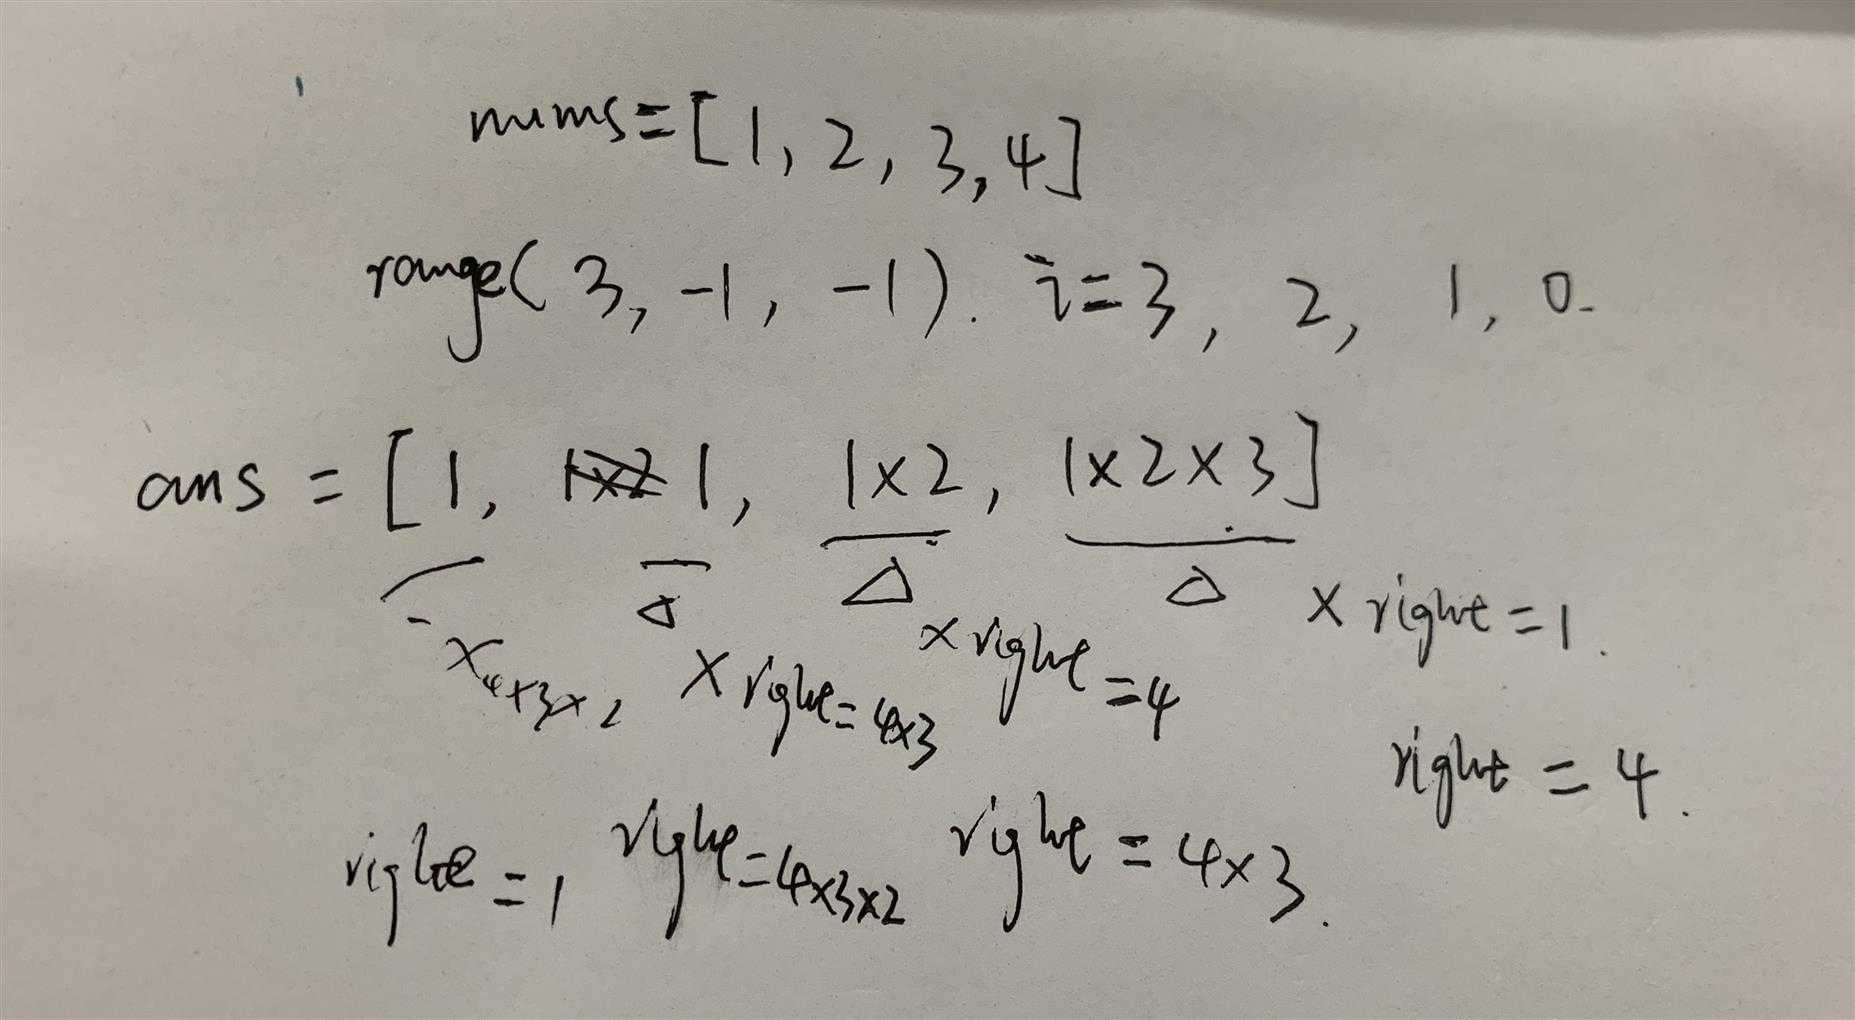 nums=[1, 2, 3, 4]
range(3, -1, -1). i=3, 2, 1, 0.
ans = [1, 1, 1×2, 1×2×3]
× right=1.
× right=4
× right=4×3
×4×3×2
right = 4.
right=1, right=4×3×2 right=4×3.